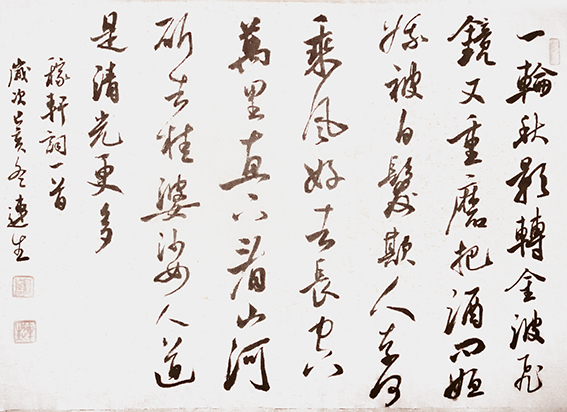 一輪秋影轉金波飛
鏡又重磨把酒問姮
娥被白髮欺人奈何
乘風好去長空
萬里直下看山河
斫去桂婆娑人道
是清光更多
稼軒詞一首
歲次己亥冬生